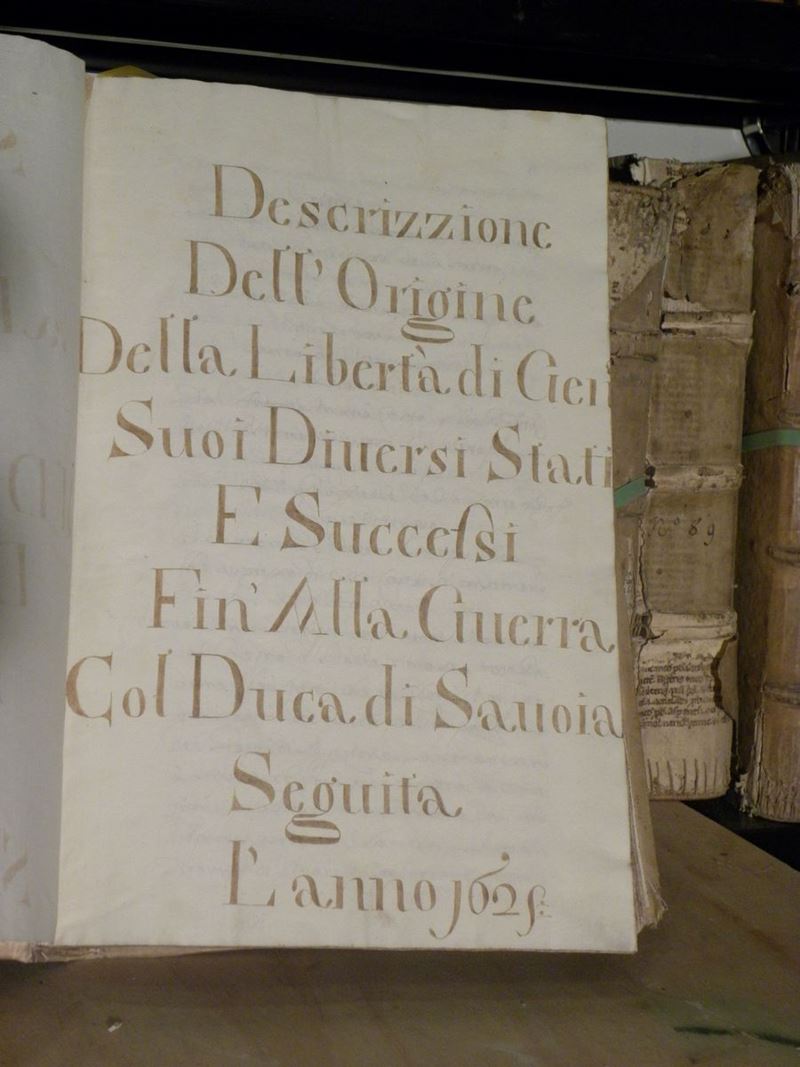 Descrizzione
Dell' Origine
Della Libertà di Gen
Suoi Diuersi Stati
E Successi
Fin' Alla Guerra
Col Duca di Sauoia
Seguita
L' anno 1625: